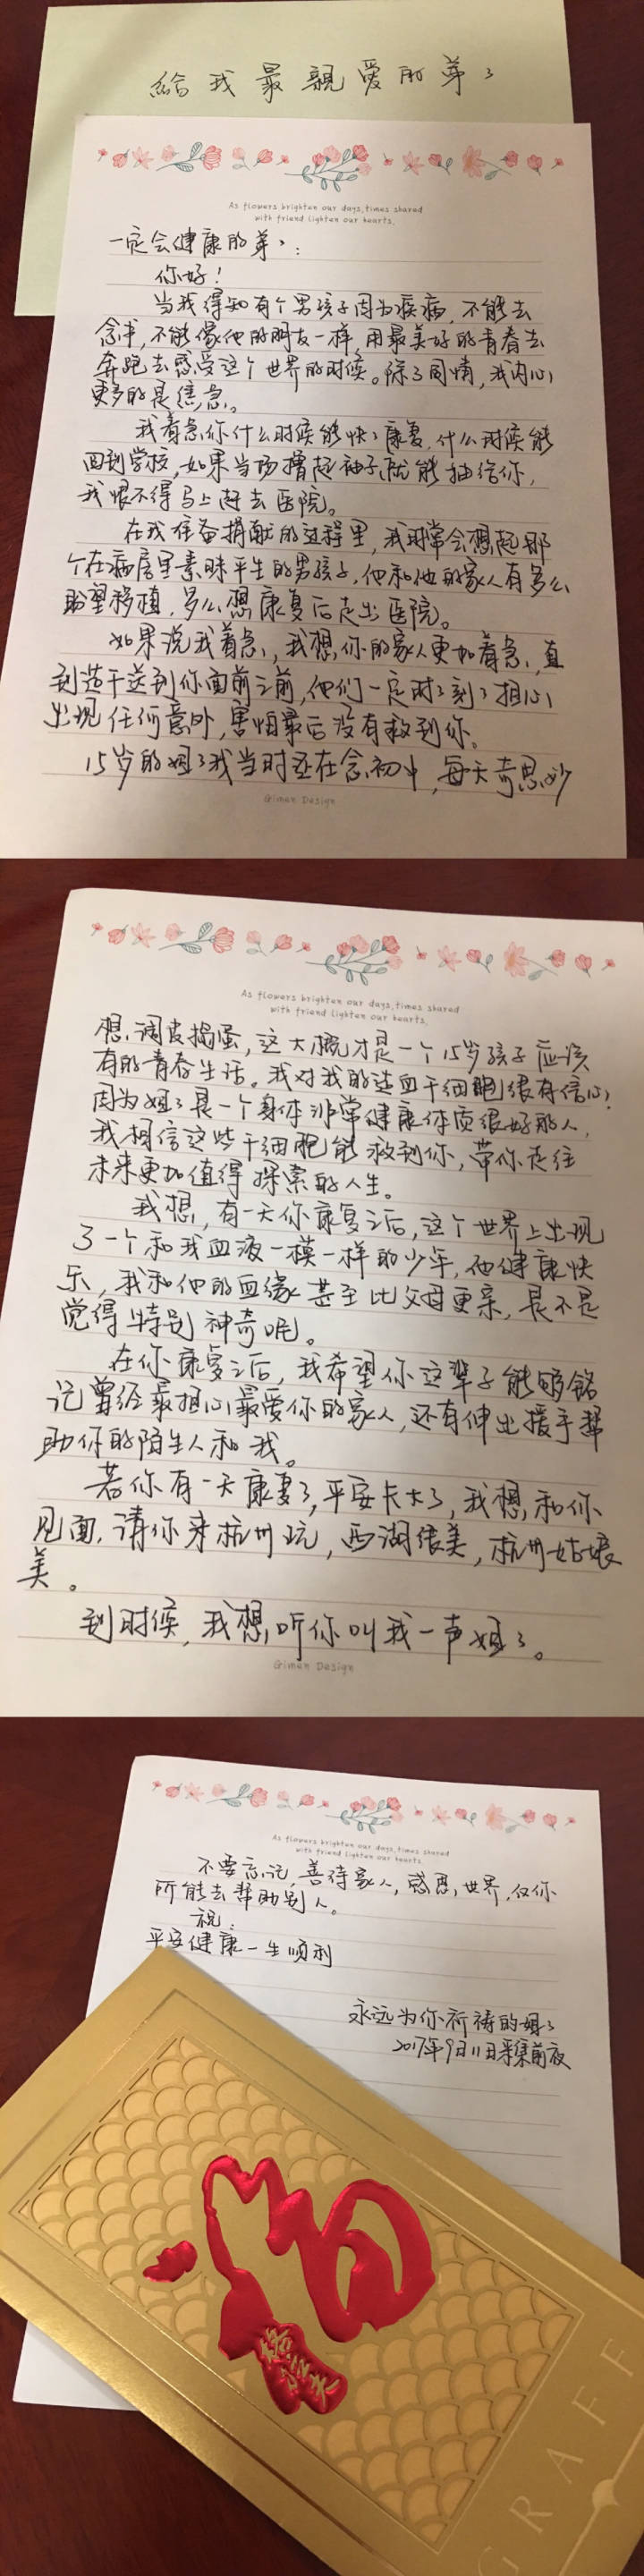 給我最親愛的弟弟
As flowers brighten our days, times shared
with friend lighten our hearts.
一定会健康的弟弟：
你好！
当我得知有个男孩子因为疾病，不能去
念书，不能像他的朋友一样，用最美好的青春去
奔跑去感受这个世界的时候。除了同情，我内心
更多的是焦急。
我着急你什么时候能快快康复，什么时候能
回到学校，如果当场撸起袖子就能抽给你，
我恨不得马上赶去医院。
在我准备捐献的过程里，我时常会想起那
个在病房里素昧平生的男孩子，他和他的家人有多么
盼望移植，多么想康复后走出医院。
如果说我着急，我想你的家人更加着急，直
到造干送到你面前之前，他们一定时时刻刻担心
出现任何意外，害怕最后没有救到你。
15岁的姐姐我当时还在念初中，每天奇思妙
Gimen Design
As flowers brighten our days, times shared
with friend lighten our hearts.
想，调皮捣蛋，这大概才是一个15岁孩子应该
有的青春生活。我对我的造血干细胞很有信心，
因为姐姐是一个身体非常健康体质很好的人，
我相信这些干细胞能救到你，带你走往
未来更加值得探索的人生。
我想，有一天你康复之后，这个世界上出现
了一个和我血液一模一样的少年，他健康快
乐，我和他的血缘甚至比父母更亲，是不是
觉得特别神奇呢。
在你康复之后，我希望你这辈子能够铭
记曾经最担心最爱你的家人，还有伸出援手帮
助你的陌生人和我。
若你有一天康复了，平安长大了，我想和你
见面，请你来杭州玩，西湖很美，杭州姑娘
美。
到时候，我想听你叫我一声姐姐。
Gimen Design
As flowers brighten our days, times shared
with friend lighten our hearts.
不要忘记，善待家人，感恩世界，仅你
所能去帮助别人。
祝：
平安健康一生顺利
永远为你祈祷的姐姐
2017年9月11日采集前夜
福
GRAFF